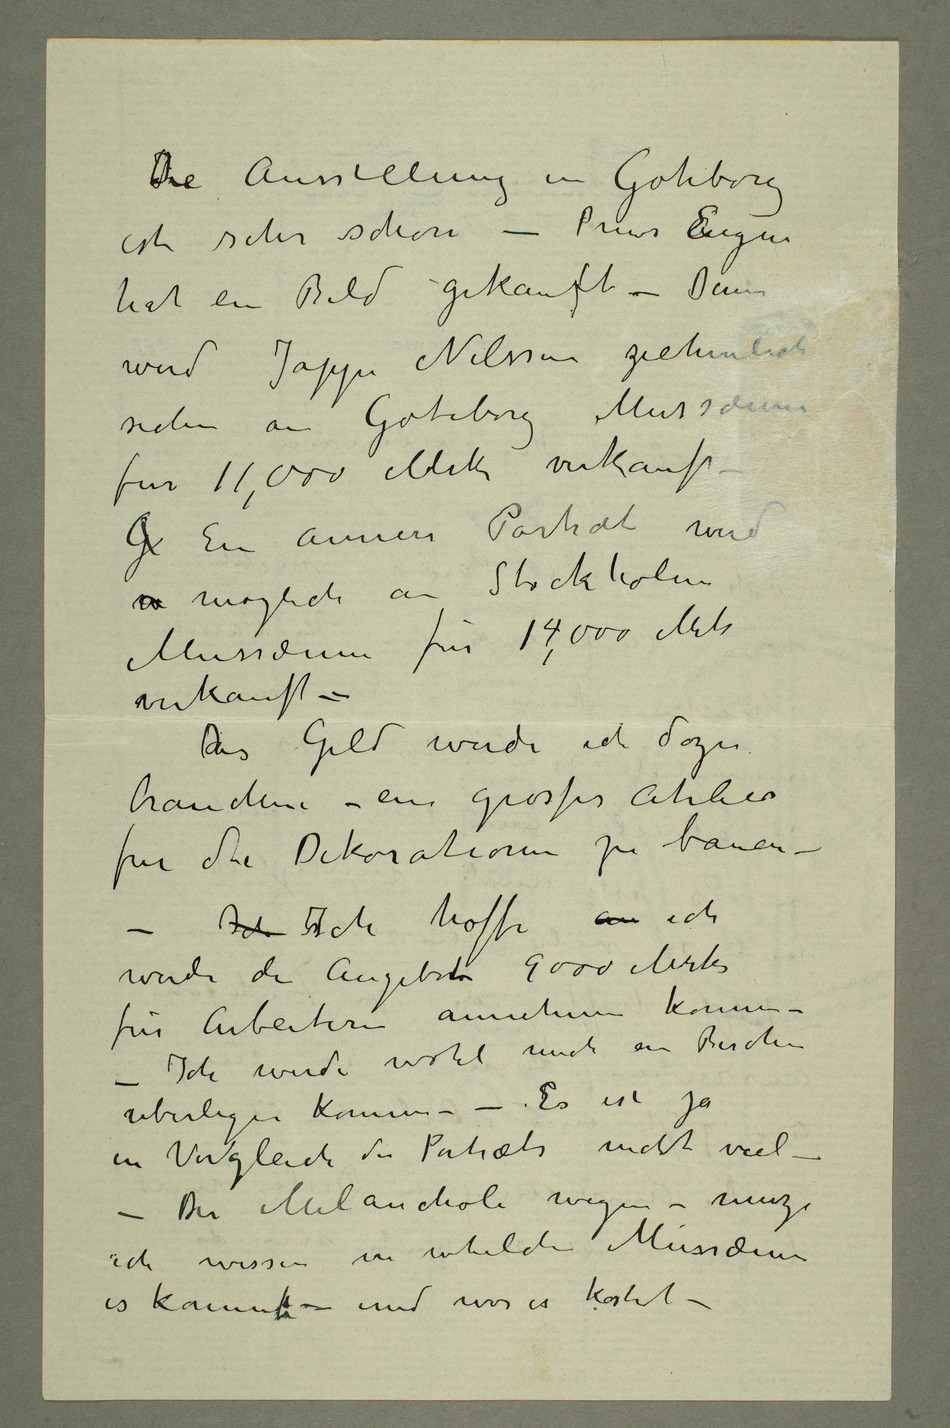 Die Ausstellung in Goteborg
ist sehr schön — Prins Eugen
hat ein Bild gekauft — Dann
wird Jappe Nilssen ziehmlich
sicher an Goteborg Mussæum
für 11,000 Mrk verkauft —
Ein anners Portræt wird
möglich an Stockholm
Mussæum für 14,000 Mrk
verkauft —
Das Geld werde ich dazu
brauchen – ein grosses Atelier
für die Dekorationen zu bauen —
— Ich Ich hoffe an ich
werde die Angebot 9000 Mrk
für Arbeitern annehmen konnen –
— Ich werde wohl mich ein Bischen
uberlegen konnen – — Es ist ja
in Vergleich der Portræts nicht viel —
— Der Melancholi wegen – muss
ich wissen in whelche Mussæum
es kommt — und was es kostet —